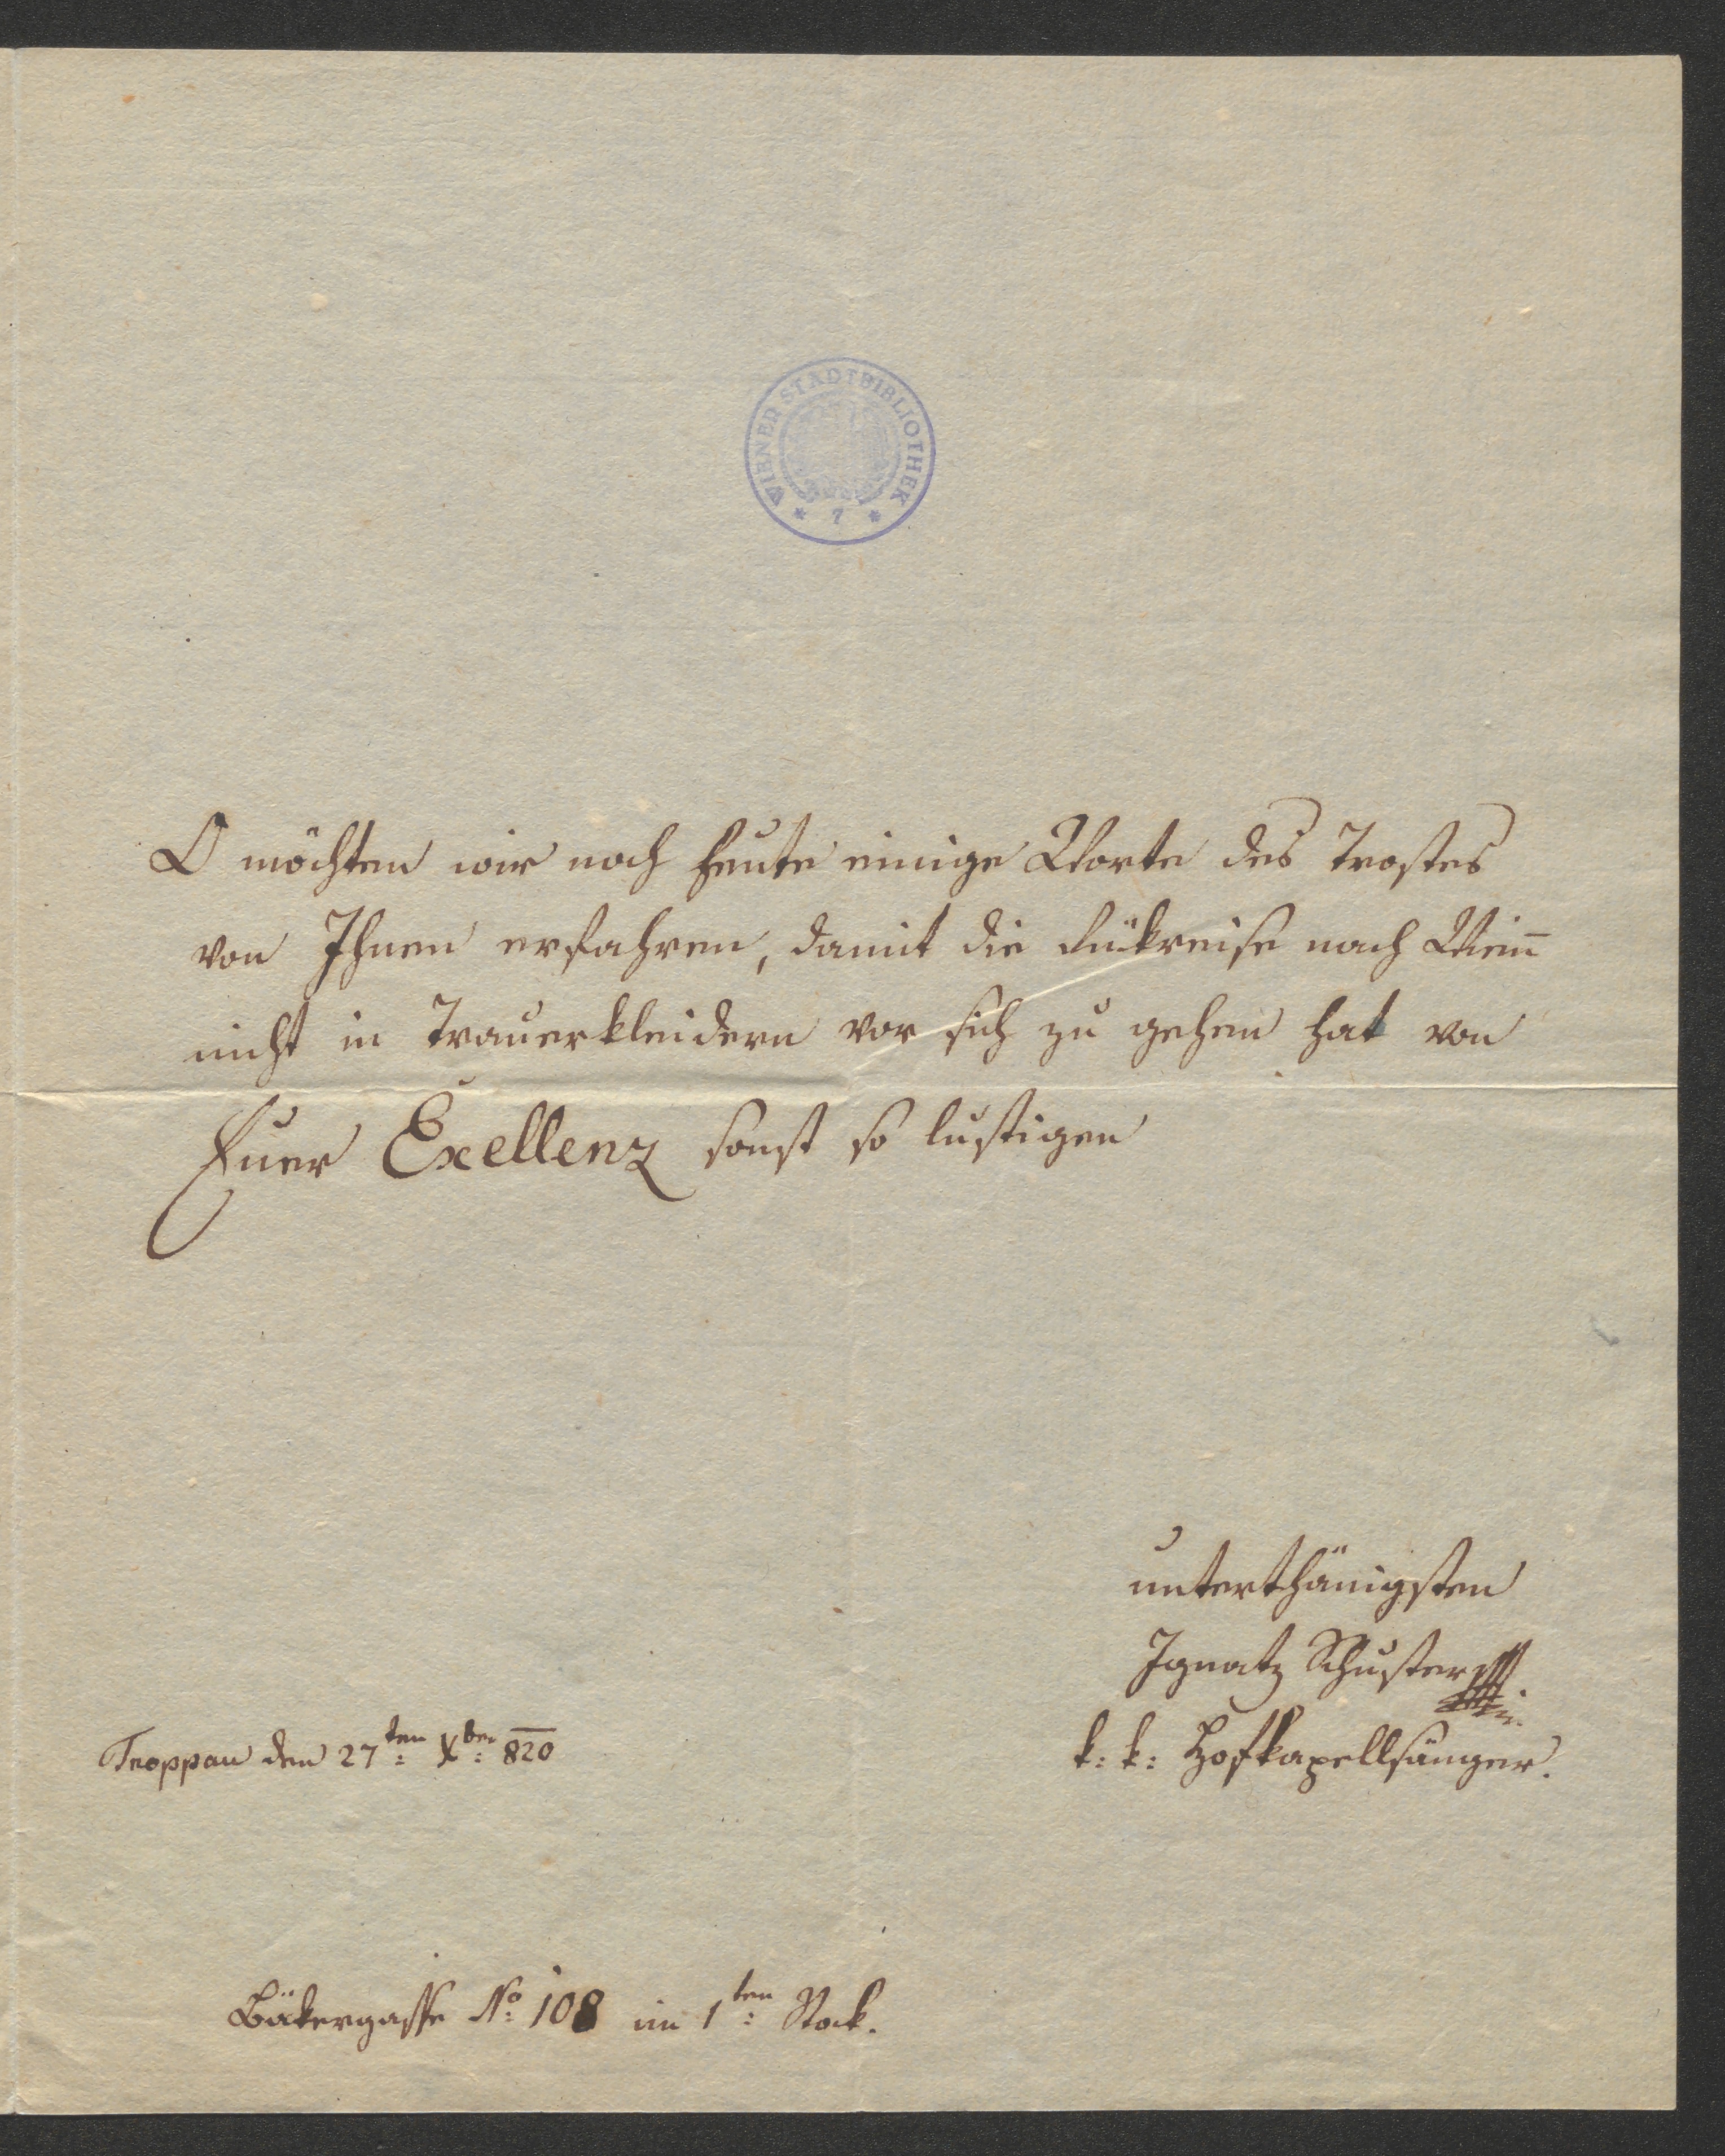 WIENER STADTBIBLIOTHEK
* 7 *
O möchten wir noch heute einige Worte des Trostes
von Ihnen erfahren, damit die Rükreise nach Wien̄
nicht in Trauerkleidern vor sich zu gehen hat von
Euer Exellenz sonst so lustigen
unterthänigsten
Ignatz Schuster
k: k: Hofkapellsänger.
Troppau den 27ten: Xber: 820
Bäkergasse No: 108 im 1ten: Stock.